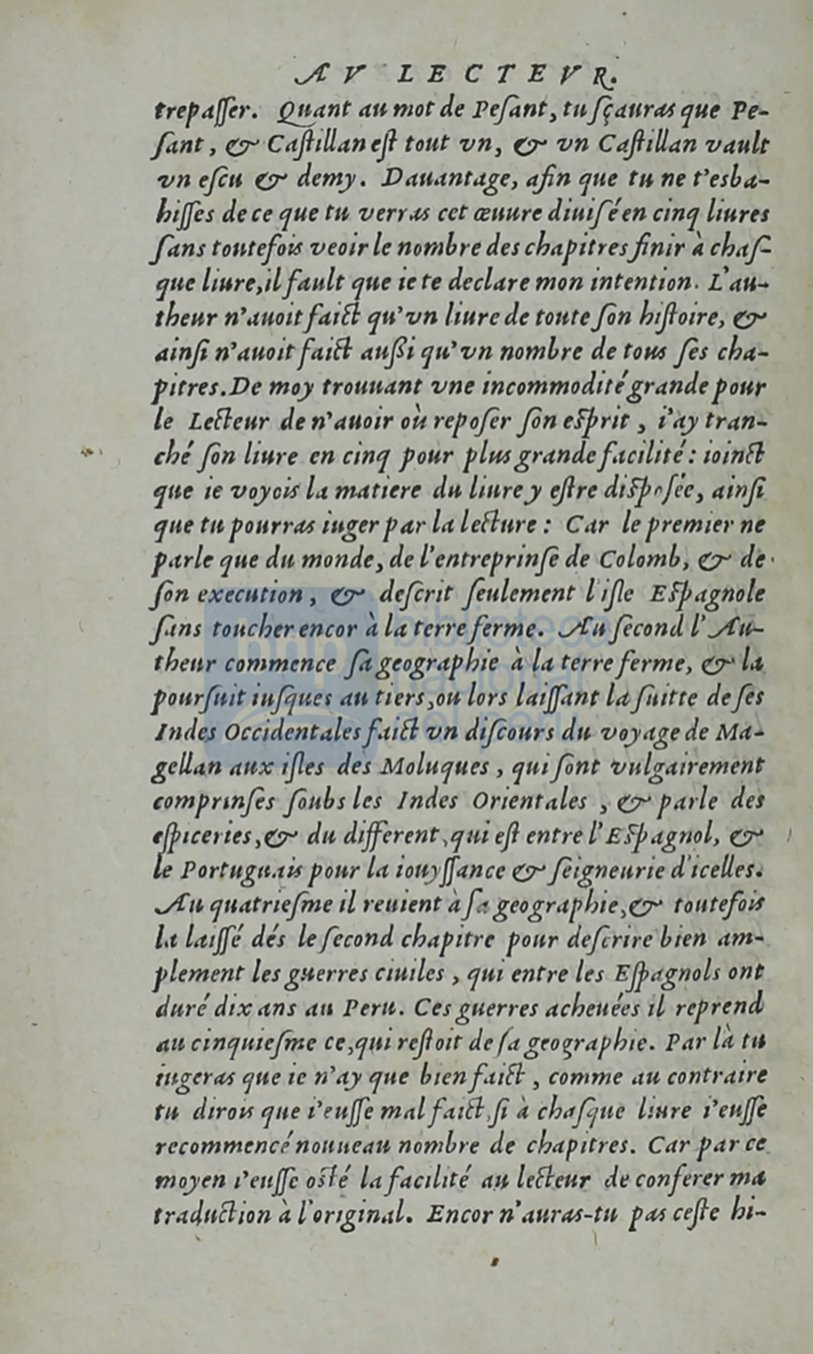 AV LECTEVR.
trepaſſer. Quant au mot de Peſant, tu ſçauras que Pe-
ſant, & Caſtillan eſt tout vn, & vn Caſtillan vault
vn eſcu & demy. Dauantage, afin que tu ne t'esba-
hiſſes de ce que tu verras cet œuure diuiſé en cinq liures
ſans toutefois veoir le nombre des chapitres finir à chaſ-
que liure, il fault que ie te declare mon intention. L'au-
theur n'auoit faict qu'vn liure de toute ſon hiſtoire, &
ainſi n'auoit faict außi qu'vn nombre de tous ſes cha-
pitres. De moy trouuant vne incommodité grande pour
le Lecteur de n'auoir où repoſer ſon eſprit, i'ay tran-
ché ſon liure en cinq pour plus grande facilité: ioinct
que ie voyois la matiere du liure y eſtre diſpoſée, ainſi
que tu pourras iuger par la lecture: Car le premier ne
parle que du monde, de l'entreprinſe de Colomb, & de
ſon execution, & deſcrit ſeulement l'iſle Eſpagnole
ſans toucher encor à la terre ferme. Au ſecond l'Au-
theur commence ſa geographie à la terre ferme, & la
pourſuit iuſques au tiers, ou lors laiſſant la ſuitte de ſes
Indes Occidentales faict vn diſcours du voyage de Ma-
gellan aux iſles des Moluques, qui ſont vulgairement
comprinſes ſoubs les Indes Orientales, & parle des
eſpiceries, & du different, qui eſt entre l'Eſpagnol, &
le Portuguais pour la iouyſſance & ſeigneurie d'icelles.
Au quatrieſme il reuient à ſa geographie, & toutefois
la laiſſé dés le ſecond chapitre pour deſcrire bien am-
plement les guerres ciuiles, qui entre les Eſpagnols ont
duré dix ans au Peru. Ces guerres acheuées il reprend
au cinquieſme ce, qui reſtoit de ſa geographie. Par là tu
iugeras que ie n'ay que bien faict, comme au contraire
tu dirois que i'euſſe mal faict, ſi à chaſque liure i'euſſe
recommencé nouueau nombre de chapitres. Car par ce
moyen i'euſſe oſté la facilité au lecteur de conferer ma
traduction à l'original. Encor n'auras-tu pas ceſte hi-